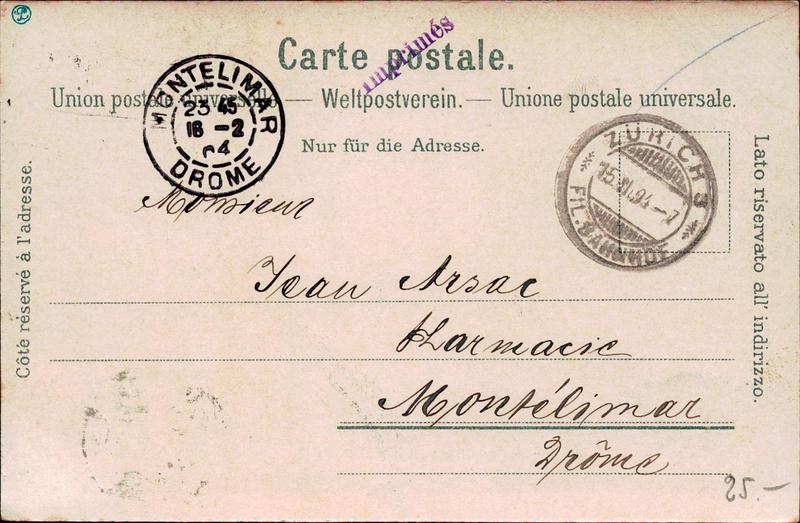 Carte postale.
Imprimés
Union postale universelle — Weltpostverein. — Unione postale universale.
Nur für die Adresse.
MONTELIMAR
23 45
16 - 2
04
DROME
ZÜRICH 3
FIL. BAHNHOF
Côté réservé à l'adresse.
Lato riservato all' indirizzo.
Monsieur
Jean Arsac
Pharmacie
Montélimar
Drôme
25.-